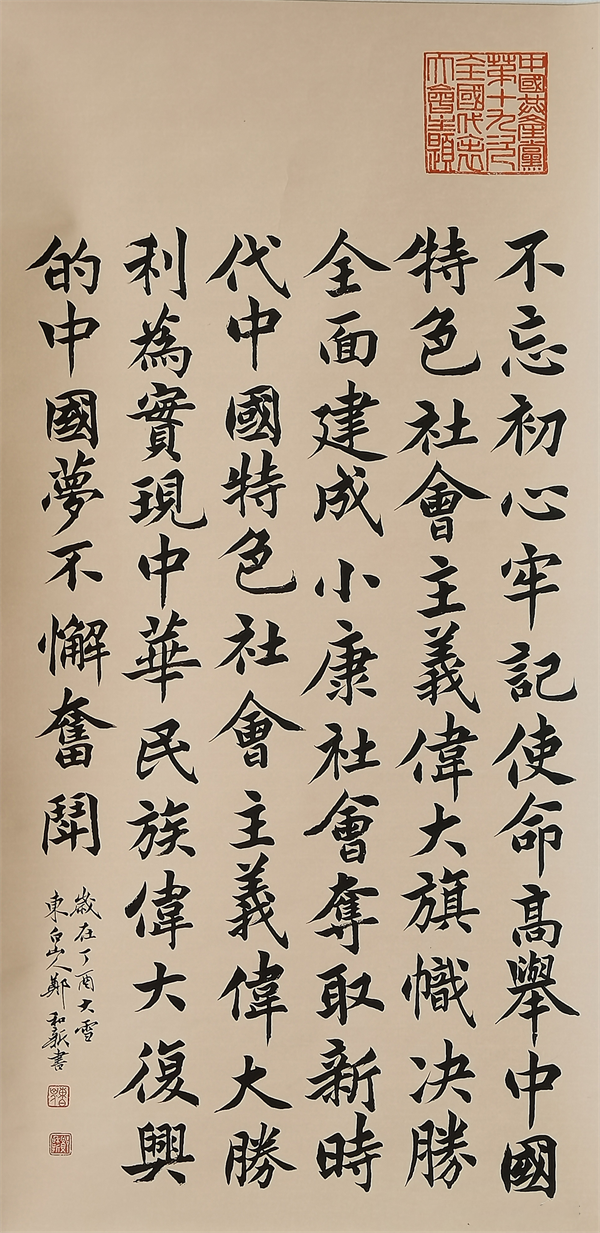 中國共產黨
第十九次
全國代表
大會主題
不忘初心牢記使命高舉中國
特色社會主義偉大旗幟决勝
全面建成小康社會奪取新時
代中國特色社會主義偉大勝
利為實現中華民族偉大復興
的中國夢不懈奮鬥
歲在丁酉大雪
東白山人鄭和新書